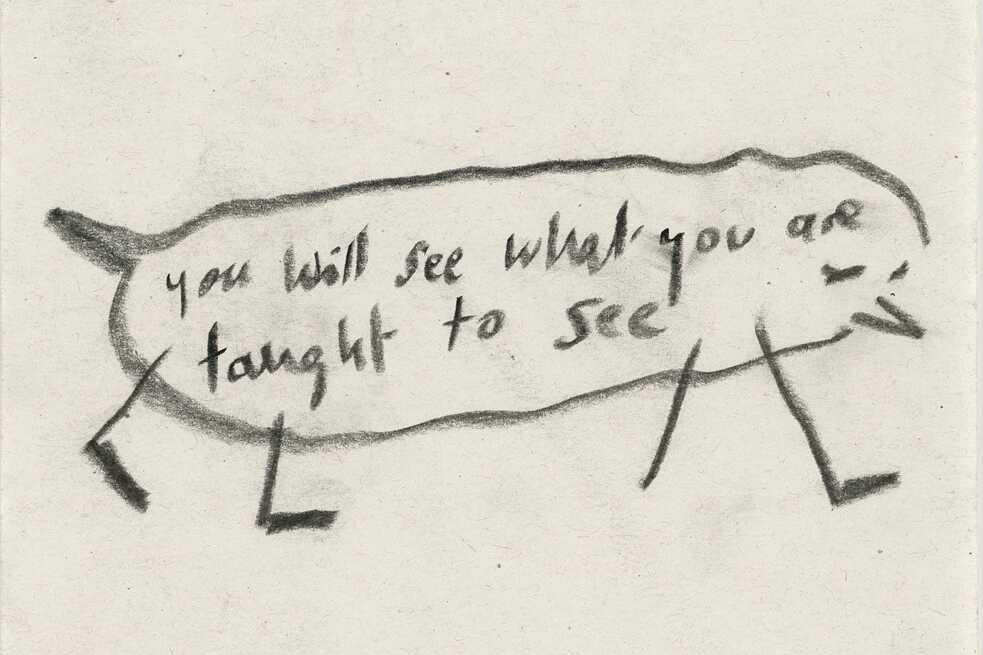 you will see what you are
taught to see